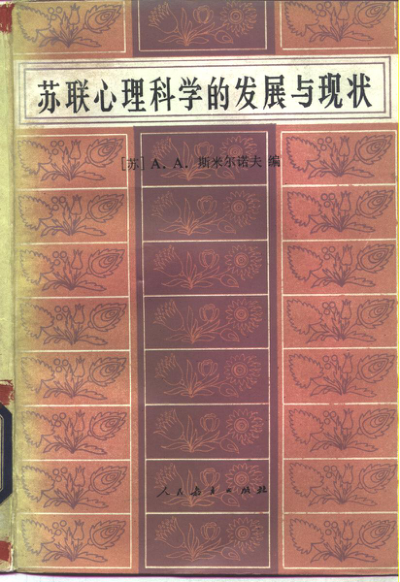 苏联心理科学的发展与现状
[苏] А. А. 斯米尔诺夫 编
人民教育出版社